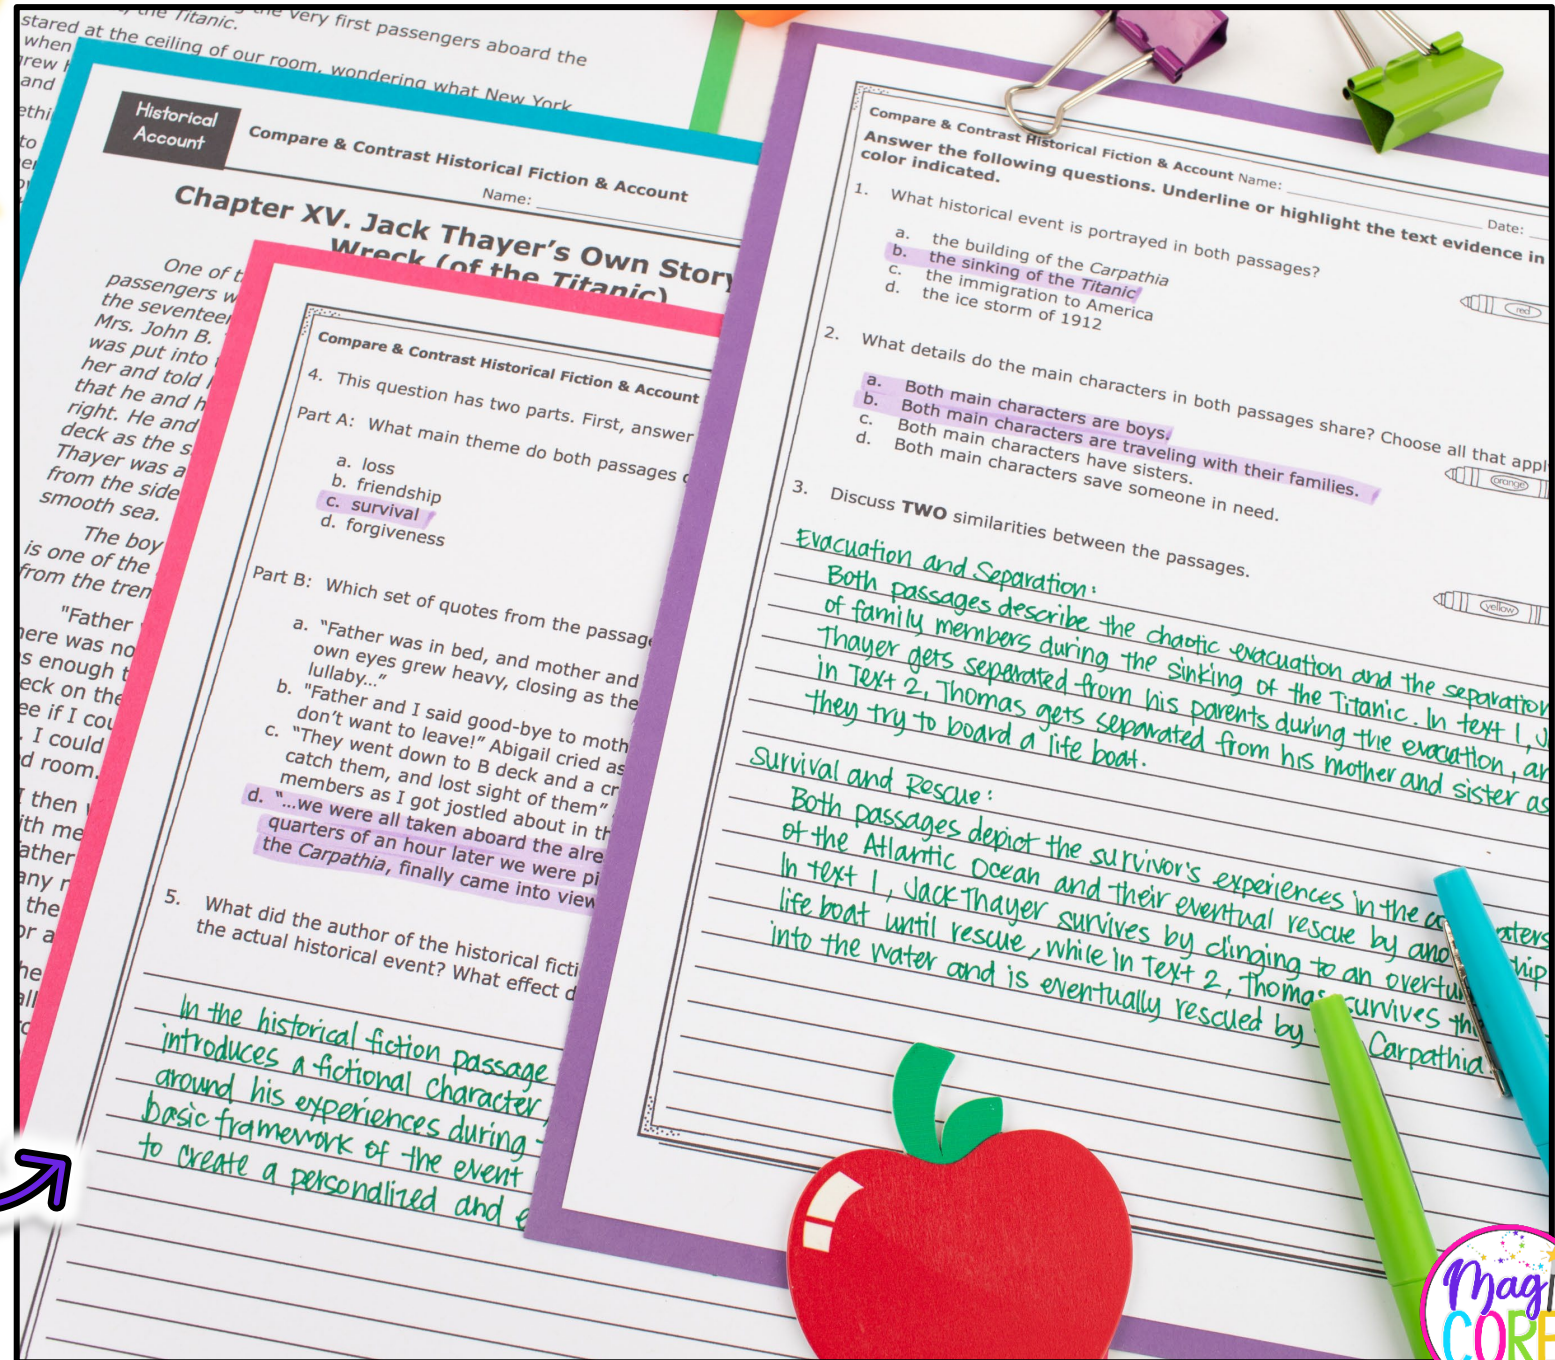 the very first passengers aboard the
the Titanic.
stared at the ceiling of our room, wondering what New York
when
and
to
Historical
Account
Compare & Contrast Historical Fiction & Account
Name:
Chapter XV. Jack Thayer's Own Story
Wreck (of the Titanic)
One of
passengers
the
Mrs. John B.
was put into
her and told
that he and
right. He and
deck as the
Thayer was a
from the side
smooth sea.
The boy
is one of the
from the
"Father
was no
enough
on the
if I
I could
room.
I then
me
the
Compare & Contrast Historical Fiction & Account
4. This question has two parts. First, answer
Part A: What main theme do both passages
a. loss
b. friendship
c. survival
d. forgiveness
Part B: Which set of quotes from the
a. "Father was in bed, and mother and
own eyes grew heavy, closing as the
lullaby…"
b. "Father and I said good-bye to
don't want to leave!" Abigail cried as
c. "They went down to B deck and a
catch them, and lost sight of them"
members as I got jostled about in
d. "…we were all taken aboard the
quarters of an hour later we were
the Carpathia, finally came into view
5. What did the author of the historical
the actual historical event? What effect
In the historical fiction passage
introduces a fictional character,
around his experiences during
basic framework of the event
to create a personalized and
Compare & Contrast Historical Fiction & Account Name:
Date:
Answer the following questions. Underline or highlight the text evidence in
color indicated.
1. What historical event is portrayed in both passages?
a. the building of the Carpathia
b. the sinking of the Titanic
c. the immigration to America
d. the ice storm of 1912
red
2. What details do the main characters in both passages share? Choose all that
a. Both main characters are boys.
b. Both main characters are traveling with their families.
c. Both main characters have sisters.
d. Both main characters save someone in need.
orange
3. Discuss TWO similarities between the passages.
yellow
Evacuation and Separation:
Both passages describe the chaotic evacuation and the separation
of family members during the sinking of the Titanic. In text 1,
Thayer gets separated from his parents during the evacution,
in Text 2, Thomas gets separated from his mother and sister as
they try to board a life boat.
Survival and Rescue:
Both passages depict the survivor's experiences in the
of the Atlantic Ocean and their eventual rescue by
In text 1, Jack Thayer survives by clinging to an
life boat until rescue, while in Text 2, Thomas survives
into the water and is eventually rescued by Carpathia
Mag
CORE